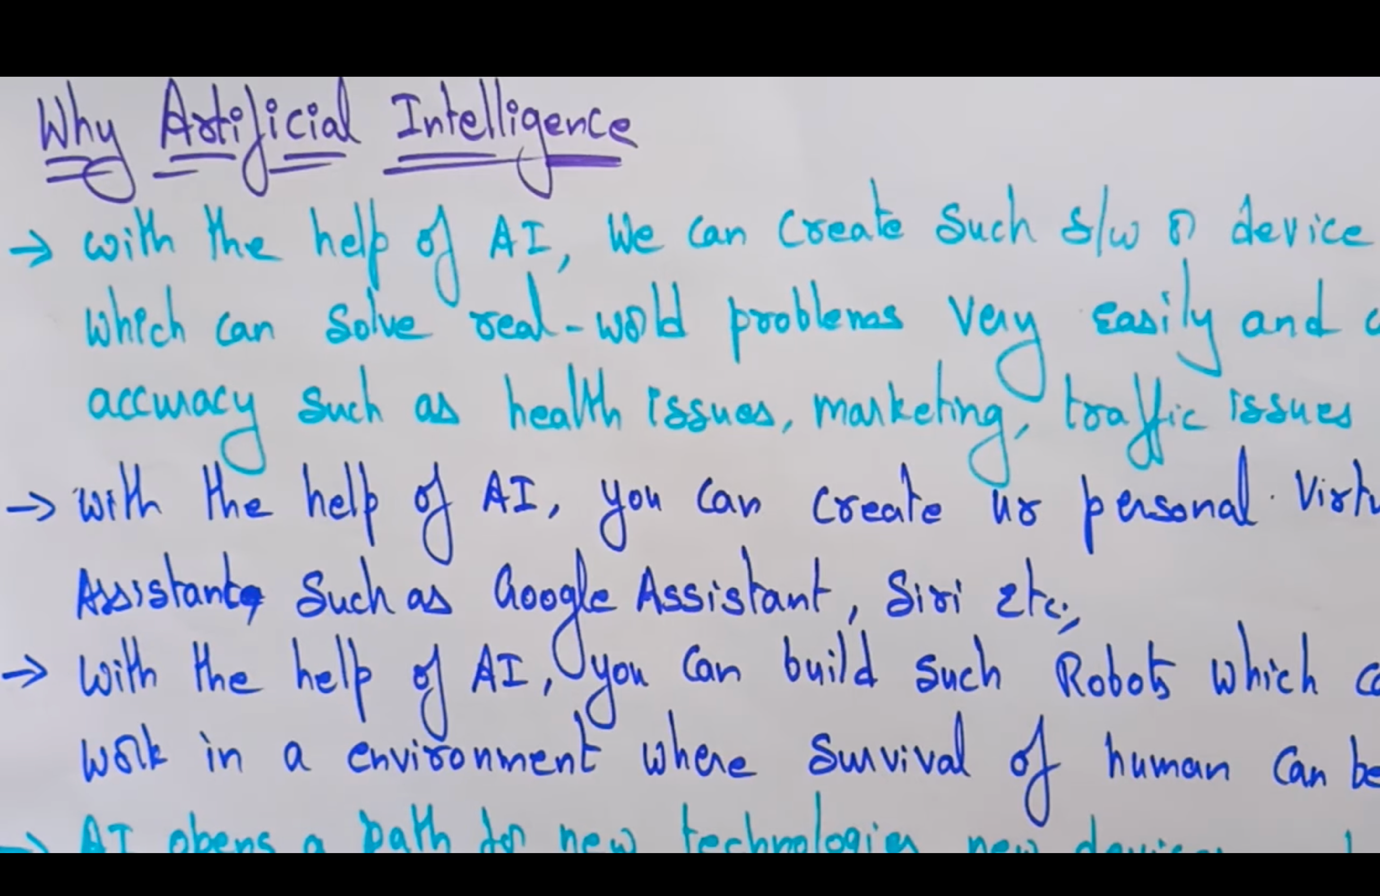 Why Artificial Intelligence
→ with the help of AI, We can create such s/w or device
which can solve real-world problems very easily and
accuracy such as health issues, marketing, traffic issues
→ with the help of AI, you can create ur personal
Assistant such as Google Assistant, Siri etc;
→ with the help of AI, you can build such Robots which
work in a environment where survival of human can be
→ AI opens a path for new technologies new